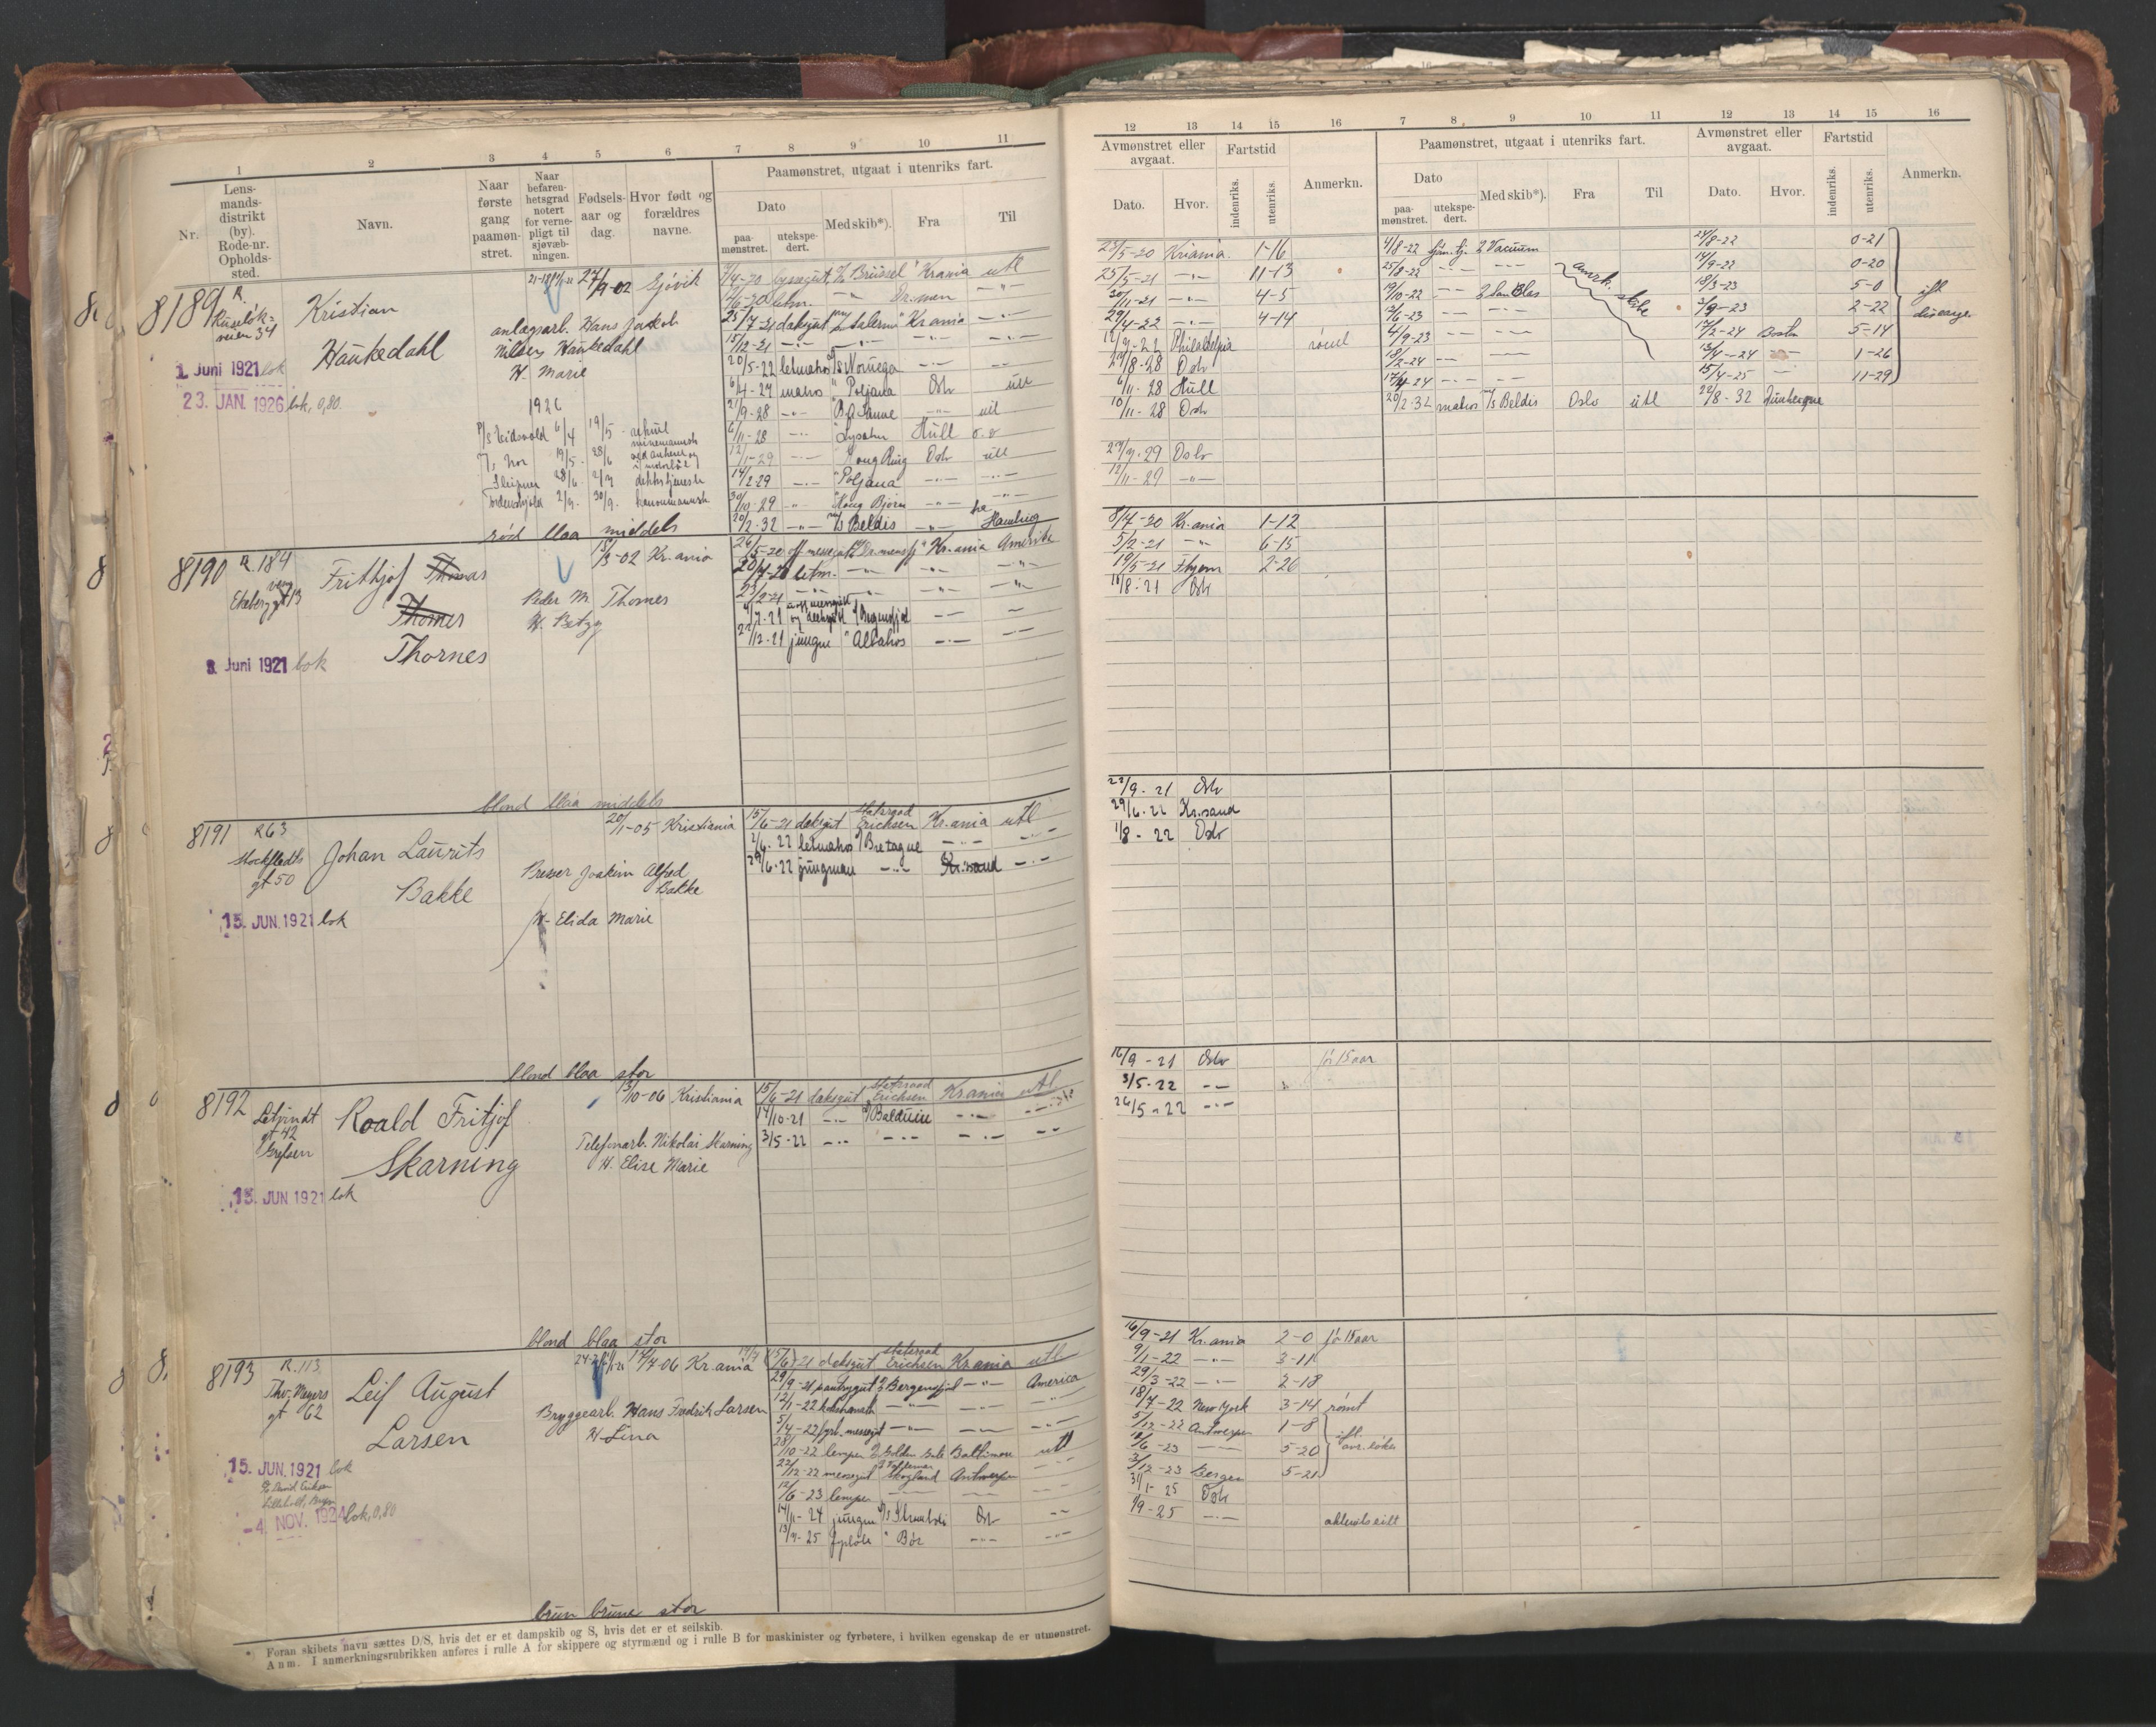 1 2 3 4 5 6 7 8 9 10 11
Nr.
Lens-
mands-
distrikt
(by).
Rode-nr.
Opholds-
sted.
Navn.
Naar
første
gang
paamøn-
stret.
Naar
befaren-
hetsgrad
notert
for verne-
pligt til
sjøvæb-
ningen.
Fødsels-
aar og
dag.
Hvor født og
forældres
navne.
Paamønstret, utgaat i utenriks fart.
Dato
paa-
mønstret.
utekspe-
dert.
Med skib*).
Fra
Til
8189 R. Kristian 27/9-02 Gjøvik
34
Haukedahl
anlægsarb. Hans Jakob
Nilsen Haukedahl
H. Marie
1. Juni 1921 lok
23. JAN. 1926 lok, 0,80.
1926
rød blaa middels
7/4-20 Brüssel Kr.ania utl
2/6-20 letm. Dr.men
25/7-21 daksgut Salerno Kr.ania
15/12-21
20/5-22 letmatros Noruega
6/4-27 matros Poljana Oslo utl
2/9-28
6/11-28 Hull
12/1-29 Kong Ring Oslo utl
14/2-29 Poljana
30/10-29 Kong Bjørn
20/2-32 M/S Beldis Hamburg
8190 R. 184 Frithjof Thomas
Thomes
Thornes
15/3-02 Kr.ania
Peder M. Thornes
H. Betzy
3. Juni 1921 lok
blond blaa middels
26/5-20 Kr.ania Amerika
20/7-20 letm.
23/2-21
4/7-21 Bergensfjord
22/12-21 jungm Albatros
8191 R 63 Johan Laurits
Stockfledts
gt 50
Bakke
20/1-05 Kristiania
Bresser Joakim Alfred
Bakke
H. Elida Marie
15. JUN. 1921 lok
blond blaa stor
15/6-21 daksgut Statsraad
Erichsen Kr.ania utl
2/6-22 letmatros Bretagne
29/6-22 jungman Kr.sand
8192 Roald Fritjof
gt 42
Grefsen
Skarning
13/10-06 Kristiania
Telefonarb. Nikolai Skarning
H. Elise Marie
15. JUN 1921 lok
blond blaa stor
15/6-21 daksgut Statsraad
Erichsen Kr.ania utl
14/10-21 Balduin
3/5-22
8193 R. 113 Leif August
Thv. Meyers
gt 62
Larsen
14/4-06 Kr.ania
Bryggearb. Hans Fredrik Larsen
H. Lina
15. JUN. 1921 lok
-4. NOV. 1924 lok, 0,80
brun brune stor
15/6-21 daksgut Statsraad
Erichsen Kr.ania utl
29/9-21 pantrygut Bergensfjord America
12/1-22
5/4-22 fyrb. messegut
28/10-22 lemper Golden Gate Baltimore utl
22/12-22 messegut Skogland Antwerpen
12/6-23 lemper
14/11-24 jungm Oslo
13/4-25 Bør
* Foran skibets navn sættes D/S, hvis det er et dampskib og S, hvis det er et seilskib.
Anm. I anmerkningsrubrikken anføres i rulle A for skippere og styrmænd og i rulle B for maskinister og fyrbøtere, i hvilken egenskap de er utmønstret.
12 13 14 15 16 7 8 9 10 11 12 13 14 15 16
Avmønstret eller
avgaat.
Dato.
Hvor.
Fartstid
indenriks.
utenriks.
Anmerkn.
Paamønstret, utgaat i utenriks fart.
Dato
paa-
mønstret.
utekspe-
dert.
Med skib*).
Fra
Til
Avmønstret eller
avgaat.
Dato.
Hvor.
Fartstid
indenriks.
utenriks.
Anmerkn.
23/5-20 Kr.ania 1-16
25/5-21 11-13
30/11-21 4-5
29/4-22 4-14
Philadelphia rømt
27/8-28 Oslo
6/11-28 Hull
10/11-28 Oslo
27/9-29 Oslo
12/11-29
4/8-22 Vacuum 24/8-22 0-21
25/8-22 14/9-22 0-20
19/10-22 San Blas 18/3-23 5-0
12/6-23 3/9-23 2-22
4/9-23 17/2-24 Boston 5-14
18/2-24 13/4-24 1-26
17/4-24 15/4-25 11-29
amrk. skibe
ifl.
discharge
20/2-32 matros M/S Beldis Oslo utl 22/8-32
8/7-20 Kr.ania 1-12
5/2-21 6-15
19/5-21 2-26
16/8-21 Oslo
22/9-21 Oslo
29/6-22 Kr.sand
1/8-22 Oslo
16/9-21 Oslo før 15 aar
3/5-22
26/5-22
16/9-21 Kr.ania 2-0 før 15 aar
9/1-22 3-11
29/3-22 2-18
18/7-22 New York 3-14 rømt
5/12-22 Antwerpen 1-8
10/6-23 5-20
3/12-23 Bergen 5-21
31/1-25 Oslo
1/9-25